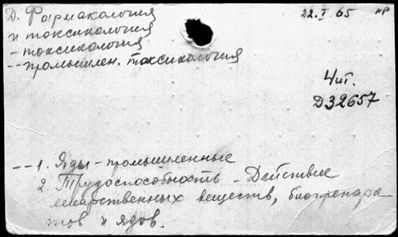 Д. Фармакология
и токсикология
- токсикология
-- промышлен. токсикология
22.I.65 нр
Чит.
Д32657
-- 1. Яды - промышленные
2. Трудоспособность - Действие
лекарственных веществ, биопрепара
тов и ядов.